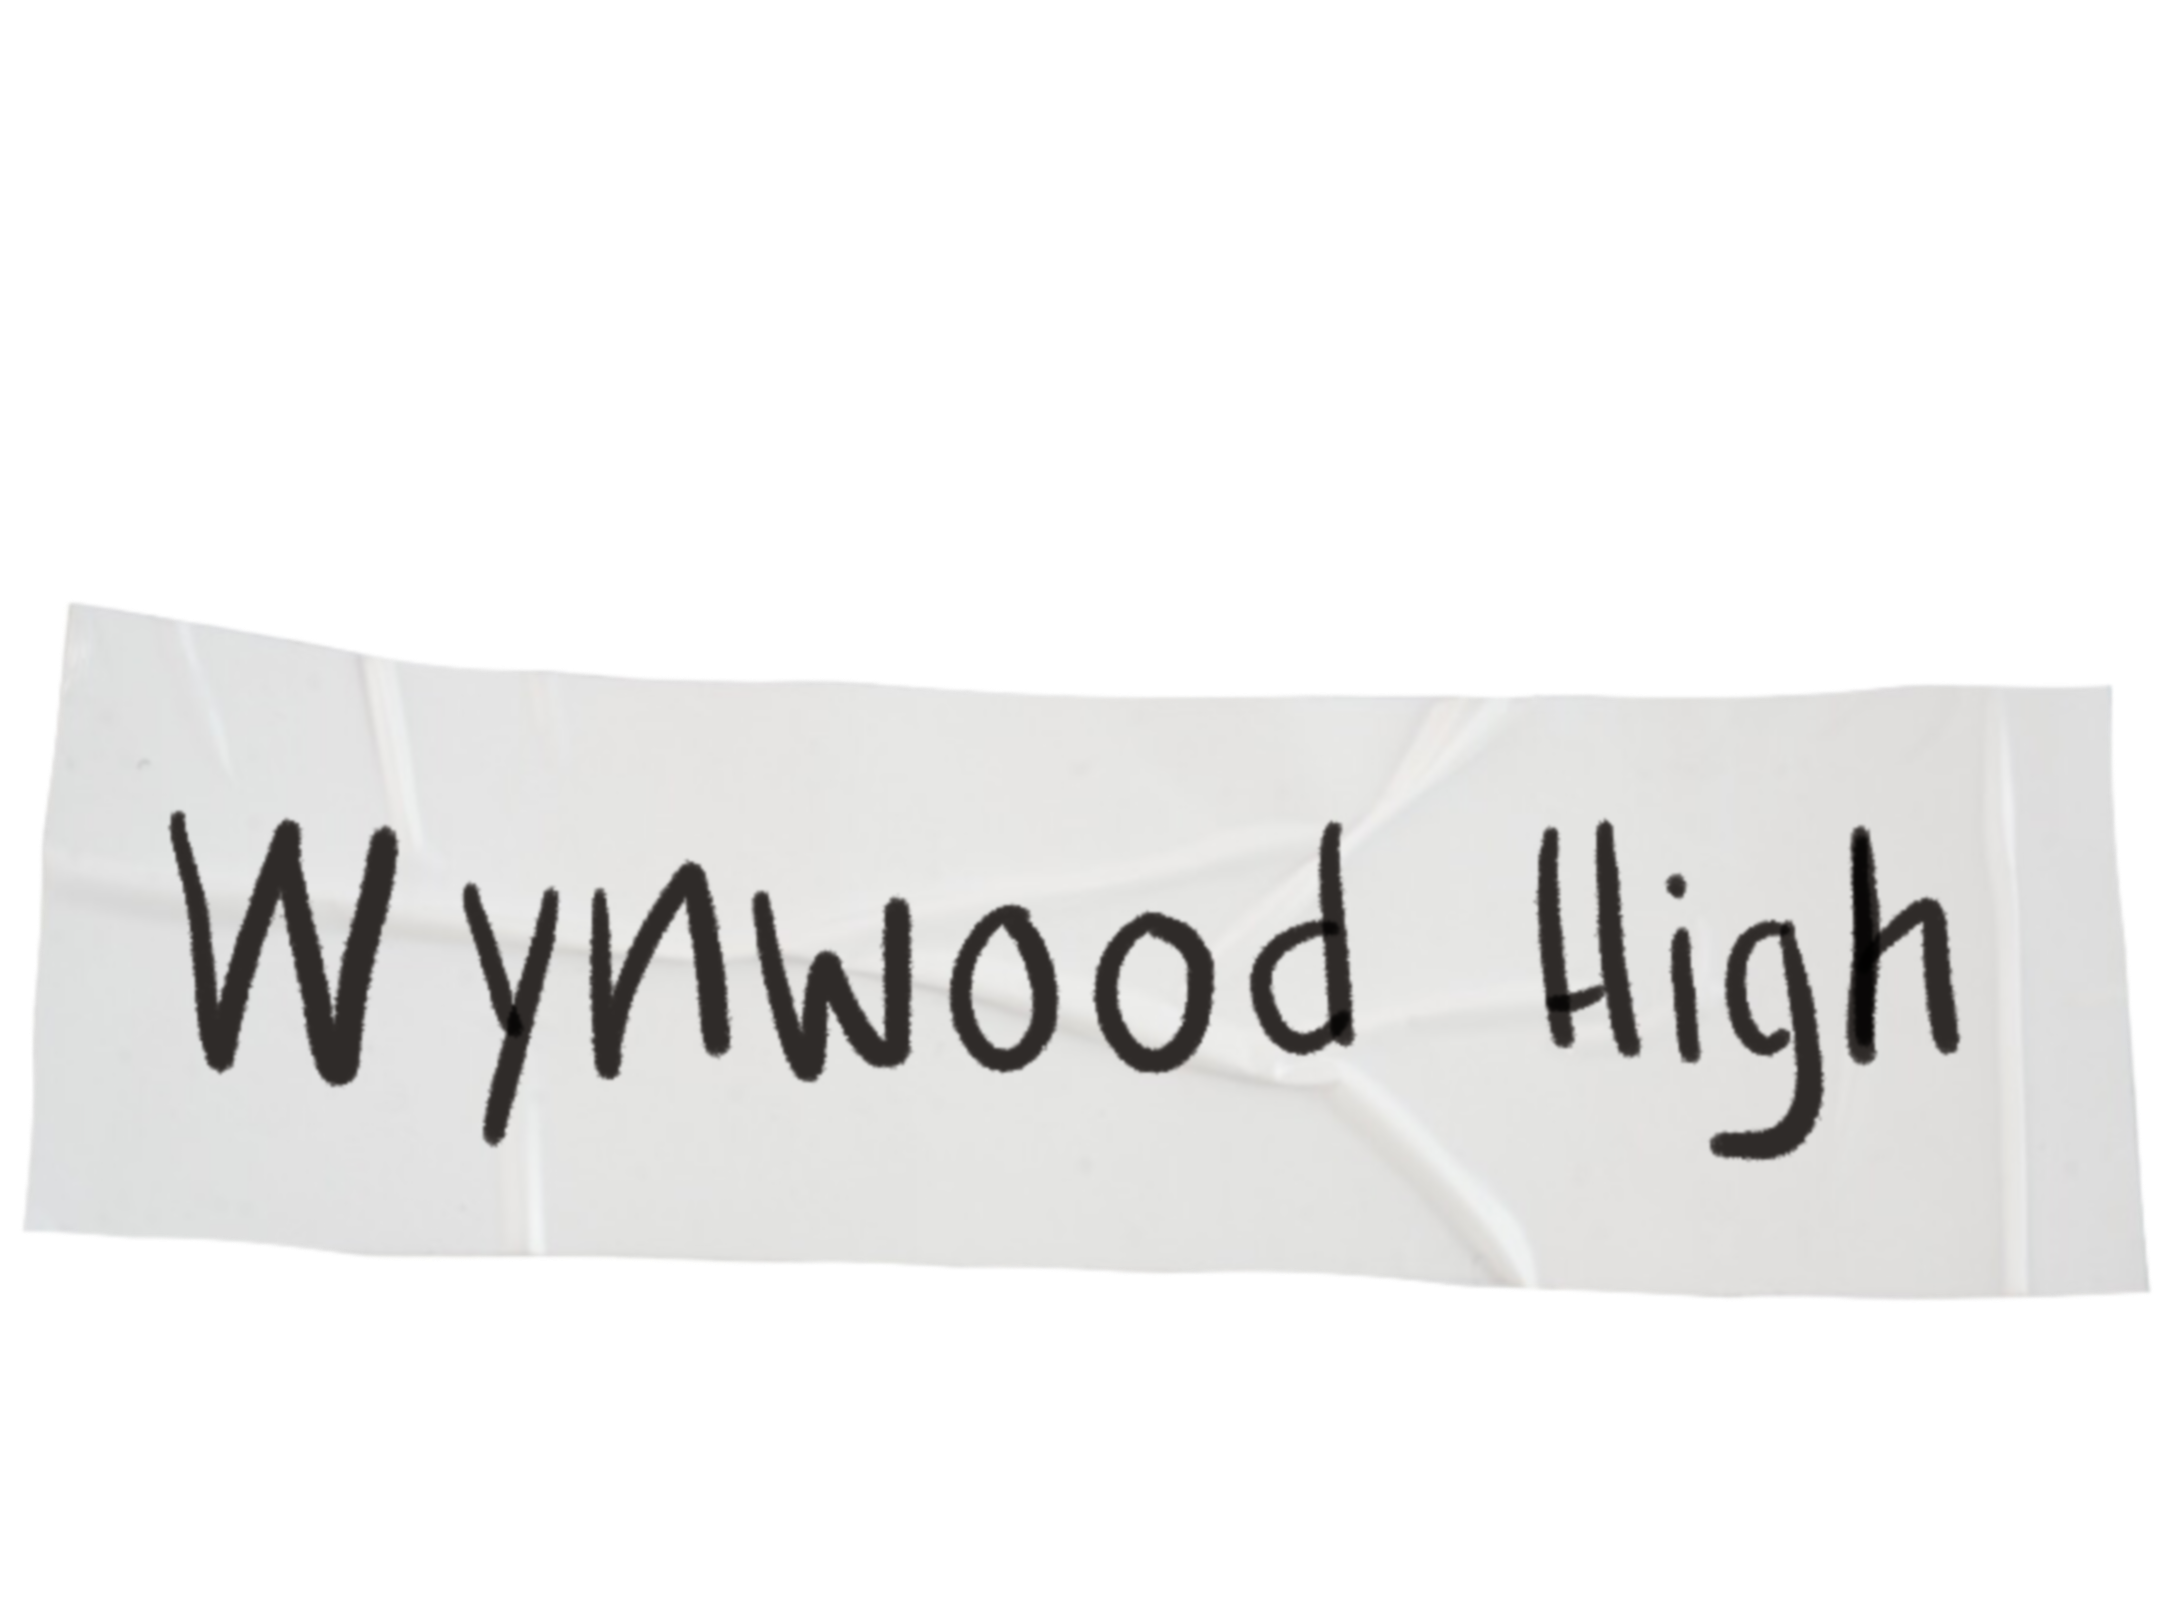 Wynwood High